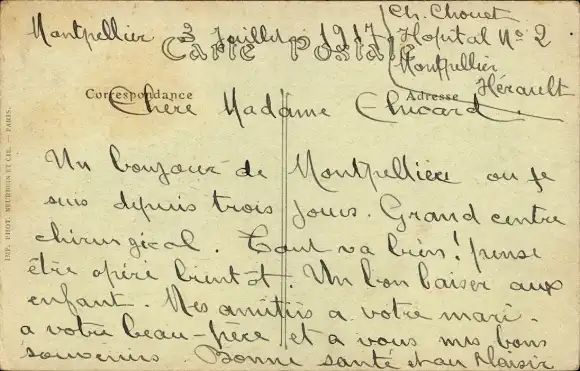 Montpellier 3 Juillet 1917
Ch. Chouet
Hopital No 2
Montpellier
Hérault
Carte Postale
Correspondance
Adresse
Chère Madame
Un bonjour de Montpellier ou je
suis depuis trois jours. Grand centre
chirurgical. Tout va bien! pense
être opéré bientôt. Un bon baiser aux
enfant. Mes amitiés a votre mari.
a votre beau-père et a vous mes bons
souvenirs. Bonne santé et au plaisir
IMP. PHOT. NEURDEIN ET CIE. — PARIS.